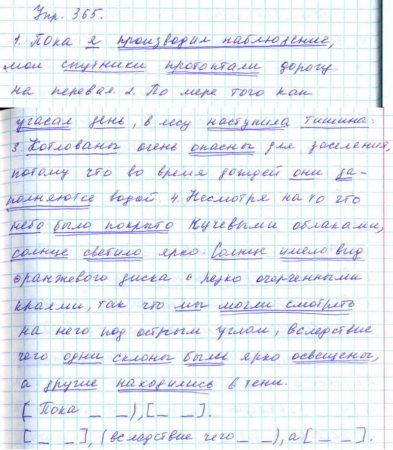 Упр. 365.
1. Пока я производил наблюдение,
мои спутники протоптали дорогу
на перевал. 2. По мере того как
угасал день, в лесу наступила тишина.
3. Котлованы очень опасны для заселения,
потому что во время дождей они за-
полняются водой. 4. Несмотря на то что
небо было покрыто кучевыми облаками,
солнце светило ярко. Солнце имело вид
оранжевого диска с резко очерченными
краями, так что мы могли смотреть
на него под острым углом, вследствие
чего одни склоны были ярко освещены,
а другие находились в тени.
[ Пока _ _ ), [ _ _ ].
[ _ _ ], (вследствие чего _ _ ), а [ _ _ ].